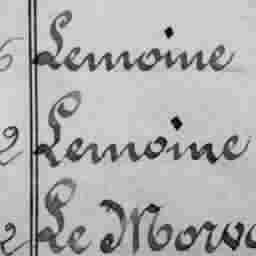 6 Lemoine
2 Lemoine
2 Le Morv